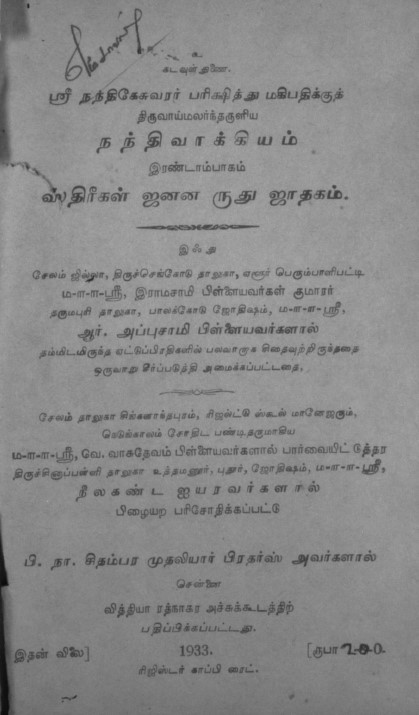 உ
கடவுள் துணை.
ஸ்ரீ நந்திகேசுவரர் பரிக்ஷித்து மகிபதிக்குத்
திருவாய்மலர்ந்தருளிய
நந்திவாக்கியம்
இரண்டாம்பாகம்
ஸ்திரீகள் ஜனன ருது ஜாதகம்.
இஃது
சேலம் ஜில்லா, திருச்செங்கோடு தாலுகா, ஏளூர் பெரும்பாளிபட்டி
ம-ள-ள-ஸ்ரீ, இராமசாமி பிள்ளையவர்கள் குமாரர்
தருமபுரி தாலுகா, பாலக்கோடு ஜோதிஷம், ம-ள-ள-ஸ்ரீ,
ஆர். அப்புசாமி பிள்ளையவர்களால்
தம்மிடமிருந்த ஏட்டுப்பிரதிகளில் பலவாறாக சிதைவுற்றிருந்ததை
ஒருவாறு சீர்ப்படுத்தி அமைக்கப்பட்டதை,
சேலம் தாலுகா சிங்களாந்தபுரம், ரிஜல்ட்டு ஸ்கூல் மானேஜரும்,
நெடுங்காலம் சோதிட பண்டிதருமாகிய
ம-ள-ள-ஸ்ரீ, வெ. வாசுதேவம் பிள்ளையவர்களால் பார்வையிட் டுத்தர
திருச்சினாப்பள்ளி தாலுகா உத்தமனூர், புதூர், ஜோதிஷம், ம-ள-ள-ஸ்ரீ,
நீலகண்ட ஐயரவர்களால்
பிழையற பரிசோதிக்கப்பட்டு
பி. நா. சிதம்பர முதலியார் பிரதர்ஸ் அவர்களால்
சென்னை
வித்தியா ரத்நாகர அச்சுக்கூடத்திற்
பதிப்பிக்கப்பட்டது.
இதன் விலை] 1933. [ரூபா 2-0-0.
ரிஜிஸ்டர் காப்பி ரைட்.